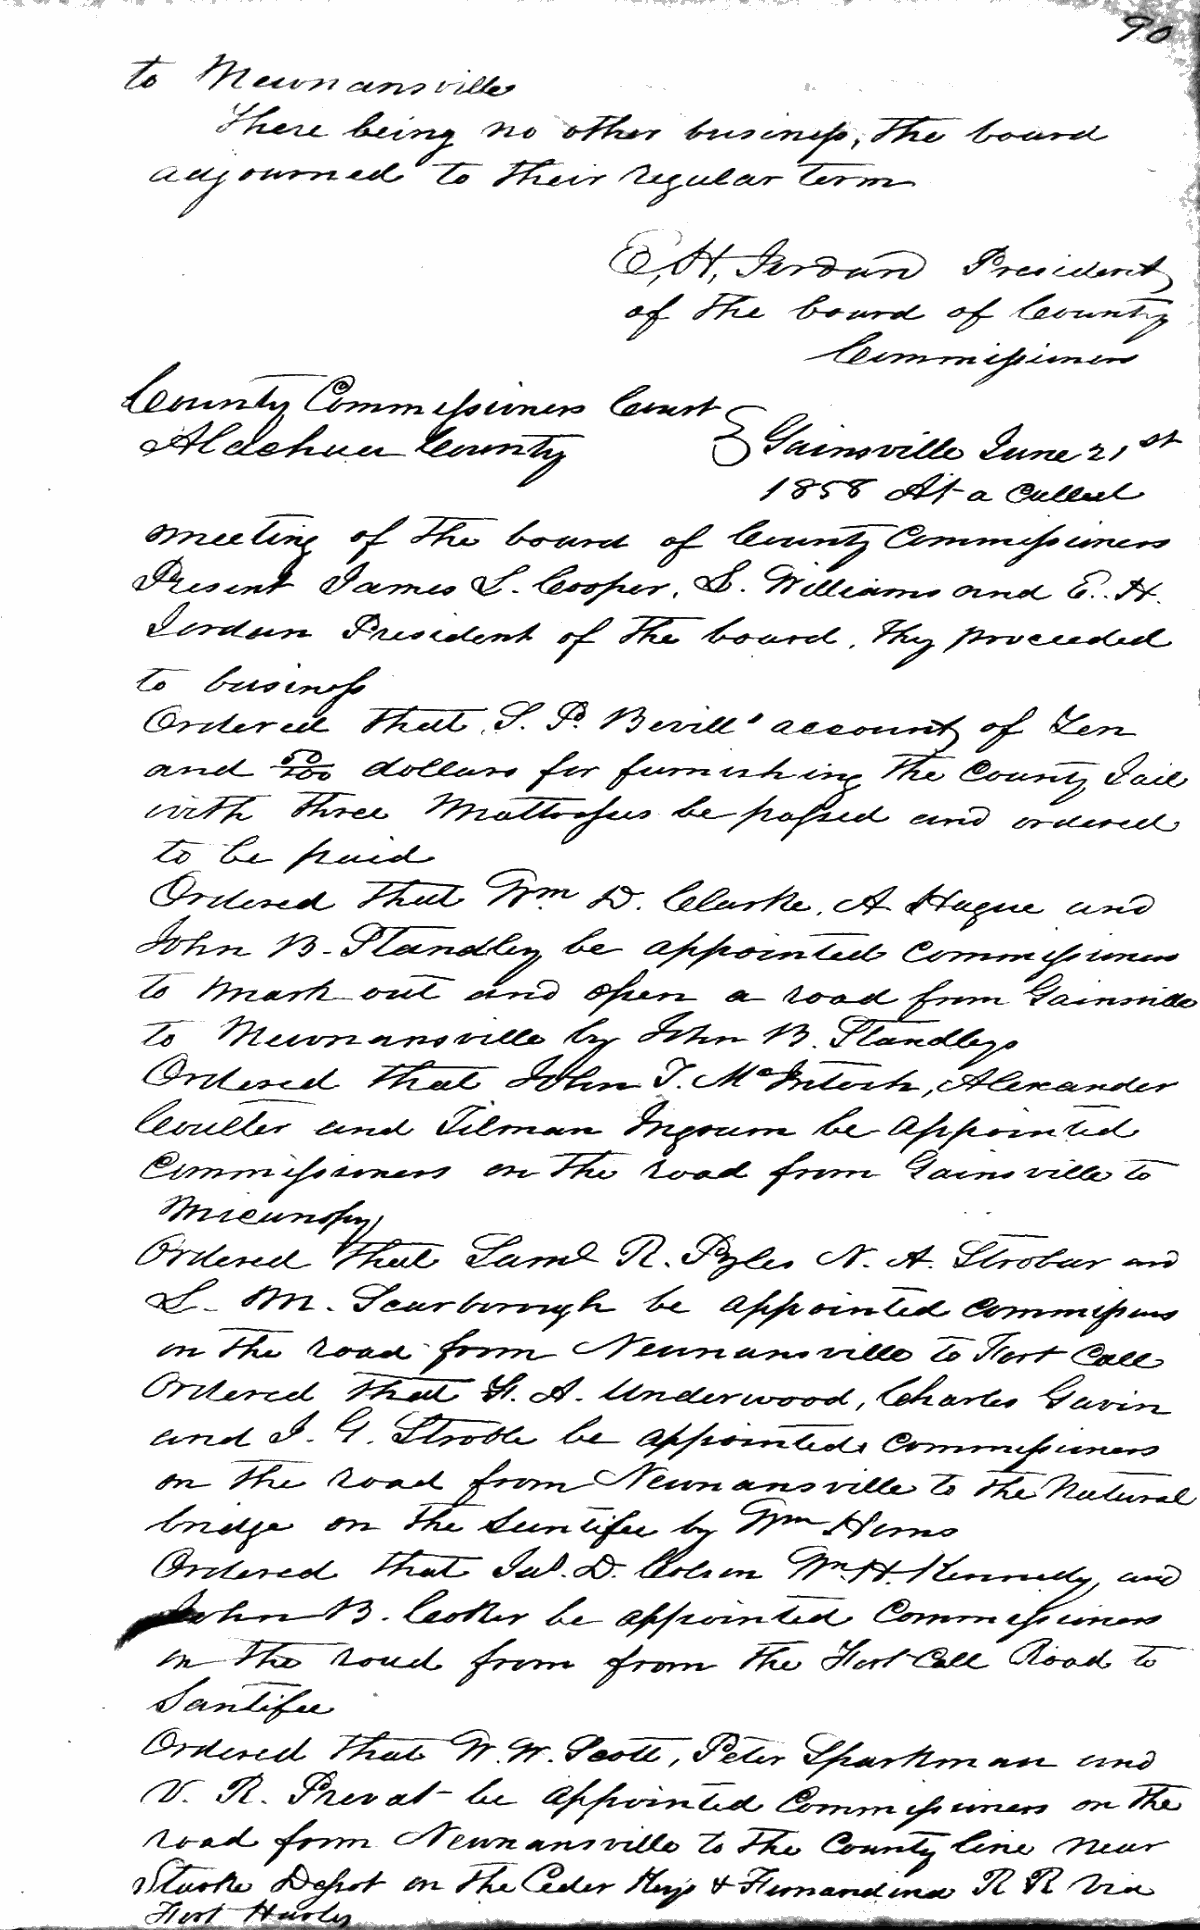 90
to Newnansville
There being no other business, the board
adjourned to their regular term
E, H, Jordan President
of the board of County
Commissioners
County Commissioners Court
Alachua County
Gainsville June 21st
1858 At a Called
meeting of the board of County Commissioners
Present James S. Cooper, S. Williams and E. H.
Jordan President of the board, they proceeded
to business
Ordered that S. P. Bevill's account of Ten
and 50/100 dollars for furnishing the County Jail
with three Mattresses be passed and ordered
to be paid
Ordered that Wm D. Clarke, A Hague and
John B. Standley be appointed Commissioners
to mark out and open a road from Gainsville
to Newnansville by John B. Standleys
Ordered that John T. McIntosh, Alexander
Coulter and Tilman Ingram be appointed
Commissioners on the road from Gainsville to
Micanopy
Ordered that Saml R. Pyles N. A. Strobar and
L. M. Scarborough be appointed Commissioners
on the road from Newnansville to Fort Call
Ordered that H. A. Underwood, Charles Gavin
and J. G. Stroble be appointed Commissioners
on the road from Newnansville to the Natural
bridge on the Suntifee by Wm Herns
Ordered that Jas. D. Colson Wm. H. Kennedy, and
John B. Cooker be appointed Commissioners
on the road from from the Fort Call Road to
Santifee
Ordered that W. W. Scott, Peter Sparkman and
V. R. Prevat be appointed Commissioners on the
road from Newnansville to the County line near
Starke Depot on the Ceder Keys & Fernandina R R via
Fort Harley